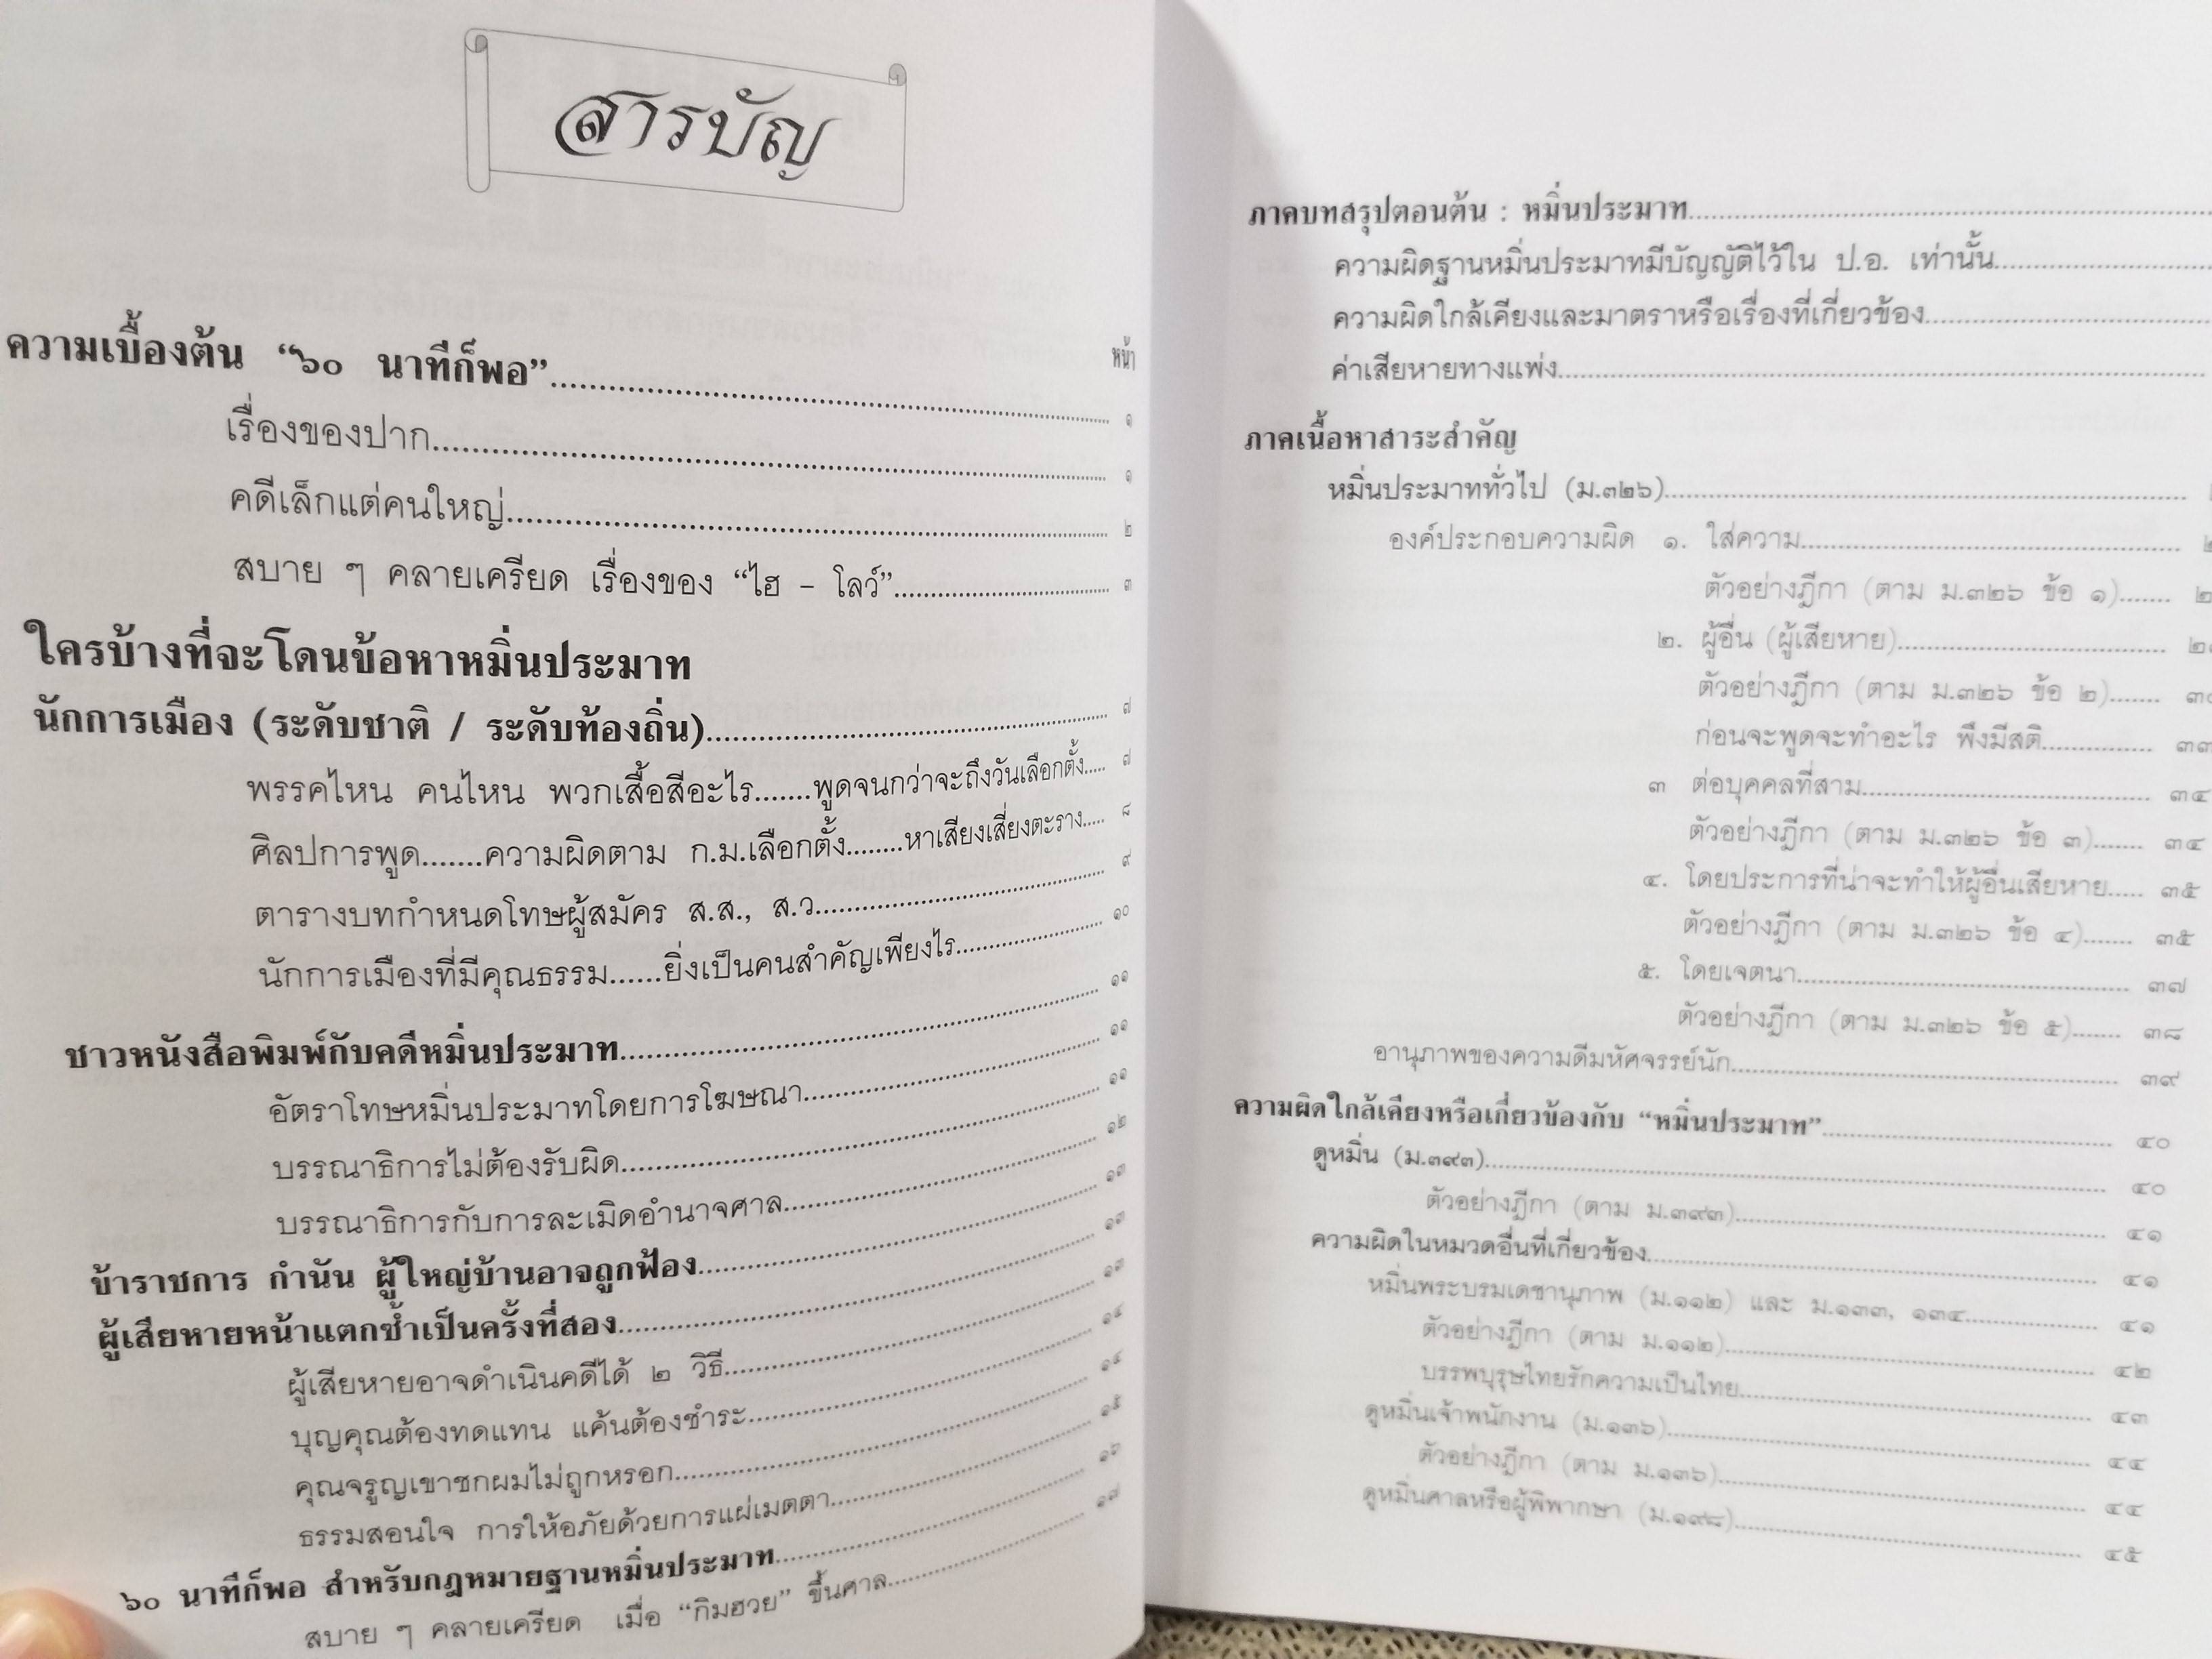 สารบัญ
หน้า
ความเบื้องต้น “๖๐ นาทีก็พอ”..........๑
เรื่องของปาก..........๑
คดีเล็กแต่คนใหญ่..........๒
สบาย ๆ คลายเครียด เรื่องของ “ไฮ - โลว์”..........๓
ใครบ้างที่จะโดนข้อหาหมิ่นประมาท
นักการเมือง (ระดับชาติ / ระดับท้องถิ่น)..........๗
พรรคไหน คนไหน พวกเสื้อสีอะไร.......พูดจนกว่าจะถึงวันเลือกตั้ง.....๗
ศิลปการพูด.......ความผิดตาม ก.ม.เลือกตั้ง........หาเสียงเสี่ยงตะราง.....๘
ตารางบทกำหนดโทษผู้สมัคร ส.ส., ส.ว..........๙
นักการเมืองที่มีคุณธรรม......ยิ่งเป็นคนสำคัญเพียงไร..........๑๐
ชาวหนังสือพิมพ์กับคดีหมิ่นประมาท..........๑๑
อัตราโทษหมิ่นประมาทโดยการโฆษณา..........๑๑
บรรณาธิการไม่ต้องรับผิด..........๑๑
บรรณาธิการกับการละเมิดอำนาจศาล..........๑๒
ข้าราชการ กำนัน ผู้ใหญ่บ้านอาจถูกฟ้อง..........๑๓
ผู้เสียหายหน้าแตกซ้ำเป็นครั้งที่สอง..........๑๓
ผู้เสียหายอาจดำเนินคดีได้ ๒ วิธี..........๑๓
บุญคุณต้องทดแทน แค้นต้องชำระ..........๑๔
คุณจรูญเขาชกผมไม่ถูกหรอก..........๑๔
ธรรมสอนใจ การให้อภัยด้วยการแผ่เมตตา..........๑๕
๖๐ นาทีก็พอ สำหรับกฎหมายฐานหมิ่นประมาท..........๑๖
สบาย ๆ คลายเครียด เมื่อ “กิมฮวย” ขึ้นศาล..........๑๗
ภาคบทสรุปตอนต้น : หมิ่นประมาท..........
ความผิดฐานหมิ่นประมาทมีบัญญัติไว้ใน ป.อ. เท่านั้น..........
ความผิดใกล้เคียงและมาตราหรือเรื่องที่เกี่ยวข้อง..........
ค่าเสียหายทางแพ่ง..........
ภาคเนื้อหาสาระสำคัญ
หมิ่นประมาททั่วไป (ม.๓๒๖)..........
องค์ประกอบความผิด ๑. ใส่ความ..........
ตัวอย่างฎีกา (ตาม ม.๓๒๖ ข้อ ๑).......
๒. ผู้อื่น (ผู้เสียหาย)..........
ตัวอย่างฎีกา (ตาม ม.๓๒๖ ข้อ ๒).......
ก่อนจะพูดจะทำอะไร พึงมีสติ..........๓๓
๓ ต่อบุคคลที่สาม..........๓๔
ตัวอย่างฎีกา (ตาม ม.๓๒๖ ข้อ ๓).......๓๔
๔. โดยประการที่น่าจะทำให้ผู้อื่นเสียหาย.....๓๕
ตัวอย่างฎีกา (ตาม ม.๓๒๖ ข้อ ๔).......๓๕
๕. โดยเจตนา..........๓๗
ตัวอย่างฎีกา (ตาม ม.๓๒๖ ข้อ ๕).......๓๘
อานุภาพของความดีมหัศจรรย์นัก..........๓๙
ความผิดใกล้เคียงหรือเกี่ยวข้องกับ “หมิ่นประมาท”..........๔๐
ดูหมิ่น (ม.๓๙๓)..........๔๐
ตัวอย่างฎีกา (ตาม ม.๓๙๓)..........๔๑
ความผิดในหมวดอื่นที่เกี่ยวข้อง..........๔๑
หมิ่นพระบรมเดชานุภาพ (ม.๑๑๒) และ ม.๑๓๓, ๑๓๔..........๔๑
ตัวอย่างฎีกา (ตาม ม.๑๑๒)..........๔๒
บรรพบุรุษไทยรักความเป็นไทย..........๔๓
ดูหมิ่นเจ้าพนักงาน (ม.๑๓๖)..........๔๔
ตัวอย่างฎีกา (ตาม ม.๑๓๖)..........๔๔
ดูหมิ่นศาลหรือผู้พิพากษา (ม.๑๙๘)..........๔๕